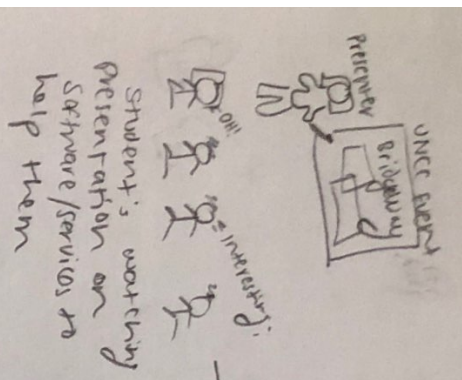 UNCC Event
Bridgeway
Presenter
OH!
Interesting!
Student's watching
presentation on
software/services to
help them